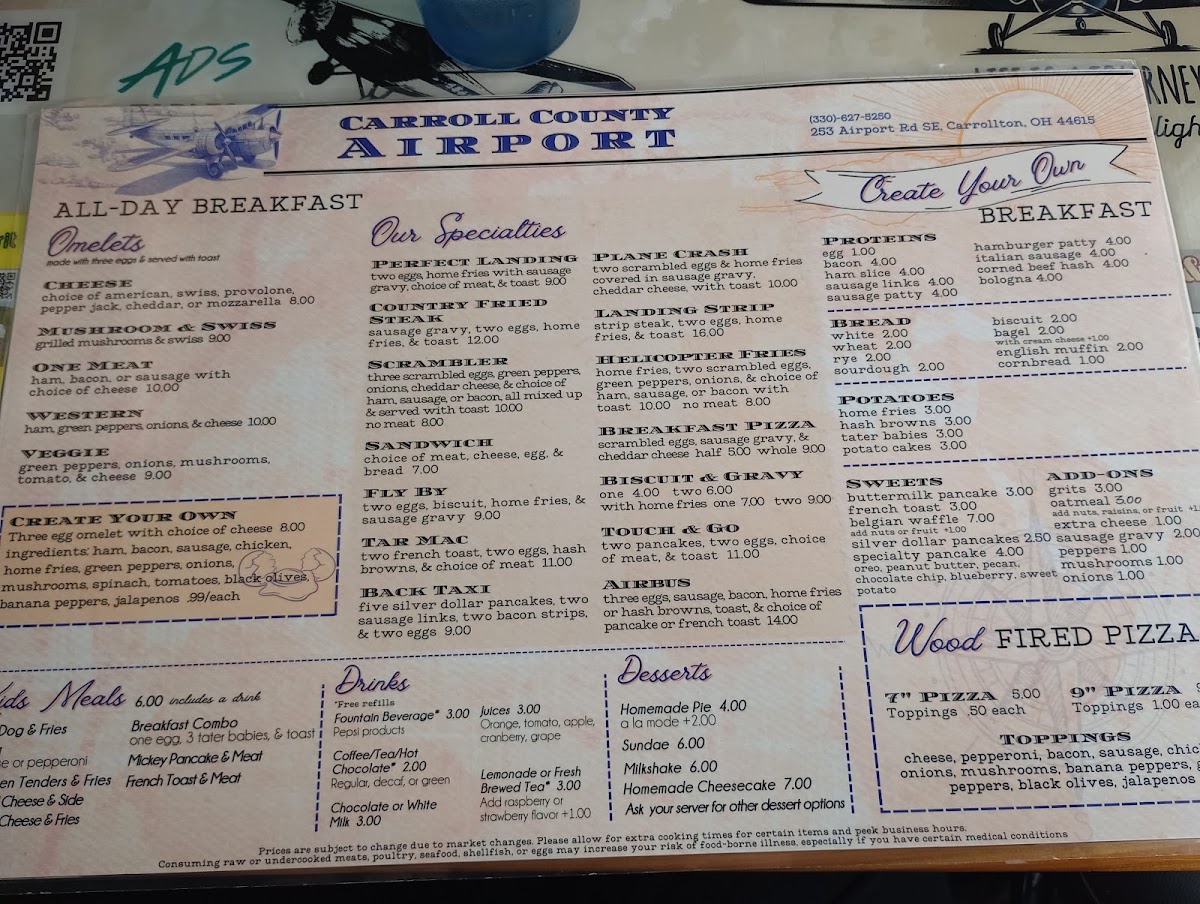 ADS
CARROLL COUNTY
AIRPORT
(330)-627-5250
253 Airport Rd SE, Carrollton, OH 44615
ALL-DAY BREAKFAST
Omelets
made with three eggs & served with toast
CHEESE
choice of american, swiss, provolone,
pepper jack, cheddar, or mozzarella 8.00
MUSHROOM & SWISS
grilled mushrooms & swiss 9.00
ONE MEAT
ham, bacon, or sausage with
choice of cheese 10.00
WESTERN
ham, green peppers, onions, & cheese 10.00
VEGGIE
green peppers, onions, mushrooms,
tomato, & cheese 9.00
CREATE YOUR OWN
Three egg omelet with choice of cheese 8.00
ingredients: ham, bacon, sausage, chicken,
home fries, green peppers, onions,
mushrooms, spinach, tomatoes, black olives,
banana peppers, jalapenos .99/each
Our Specialties
PERFECT LANDING
two eggs, home fries with sausage
gravy, choice of meat, & toast 9.00
COUNTRY FRIED
STEAK
sausage gravy, two eggs, home
fries, & toast 12.00
SCRAMBLER
three scrambled eggs, green peppers,
onions, cheddar cheese, & choice of
ham, sausage, or bacon, all mixed up
& served with toast 10.00
no meat 8.00
SANDWICH
choice of meat, cheese, egg, &
bread 7.00
FLY BY
two eggs, biscuit, home fries, &
sausage gravy 9.00
TAR MAC
two french toast, two eggs, hash
browns, & choice of meat 11.00
BACK TAXI
five silver dollar pancakes, two
sausage links, two bacon strips,
& two eggs 9.00
PLANE CRASH
two scrambled eggs & home fries
covered in sausage gravy,
cheddar cheese, with toast 10.00
LANDING STRIP
strip steak, two eggs, home
fries, & toast 16.00
HELICOPTER FRIES
home fries, two scrambled eggs,
green peppers, onions, & choice of
ham, sausage, or bacon with
toast 10.00 no meat 8.00
BREAKFAST PIZZA
scrambled eggs, sausage gravy, &
cheddar cheese half 5.00 whole 9.00
BISCUIT & GRAVY
one 4.00 two 6.00
with home fries one 7.00 two 9.00
TOUCH & GO
two pancakes, two eggs, choice
of meat, & toast 11.00
AIRBUS
three eggs, sausage, bacon, home fries
or hash browns, toast, & choice of
pancake or french toast 14.00
Create Your Own
BREAKFAST
PROTEINS
egg 1.00
bacon 4.00
ham slice 4.00
sausage links 4.00
sausage patty 4.00
hamburger patty 4.00
italian sausage 4.00
corned beef hash 4.00
bologna 4.00
BREAD
white 2.00
wheat 2.00
rye 2.00
sourdough 2.00
biscuit 2.00
bagel 2.00
with cream cheese +1.00
english muffin 2.00
cornbread 1.00
POTATOES
home fries 3.00
hash browns 3.00
tater babies 3.00
potato cakes 3.00
SWEETS
buttermilk pancake 3.00
french toast 3.00
belgian waffle 7.00
add nuts or fruit +1.00
silver dollar pancakes 2.50
specialty pancake 4.00
oreo, peanut butter, pecan,
chocolate chip, blueberry, sweet
potato
ADD-ONS
grits 3.00
oatmeal 3.00
add nuts, raisins, or fruit
extra cheese 1.00
sausage gravy 2.00
peppers 1.00
mushrooms 1.00
onions 1.00
Wood FIRED PIZZA
7" PIZZA 5.00
Toppings .50 each
9" PIZZA
Toppings 1.00
TOPPINGS
cheese, pepperoni, bacon, sausage,
onions, mushrooms, banana peppers,
peppers, black olives, jalapenos
Meals 6.00 includes a drink
Dog & Fries
or pepperoni
Tenders & Fries
Cheese & Side
Cheese & Fries
Breakfast Combo
one egg, 3 tater babies, & toast
Mickey Pancake & Meat
French Toast & Meat
Drinks
*Free refills
Fountain Beverage* 3.00
Pepsi products
Coffee/Tea/Hot
Chocolate* 2.00
Regular, decaf, or green
Chocolate or White
Milk 3.00
Juices 3.00
Orange, tomato, apple,
cranberry, grape
Lemonade or Fresh
Brewed Tea* 3.00
Add raspberry or
strawberry flavor +1.00
Desserts
Homemade Pie 4.00
a la mode +2.00
Sundae 6.00
Milkshake 6.00
Homemade Cheesecake 7.00
Ask your server for other dessert options
Prices are subject to change due to market changes. Please allow for extra cooking times for certain items and peek business hours.
Consuming raw or undercooked meats, poultry, seafood, shellfish, or eggs may increase your risk of food-borne illness, especially if you have certain medical conditions